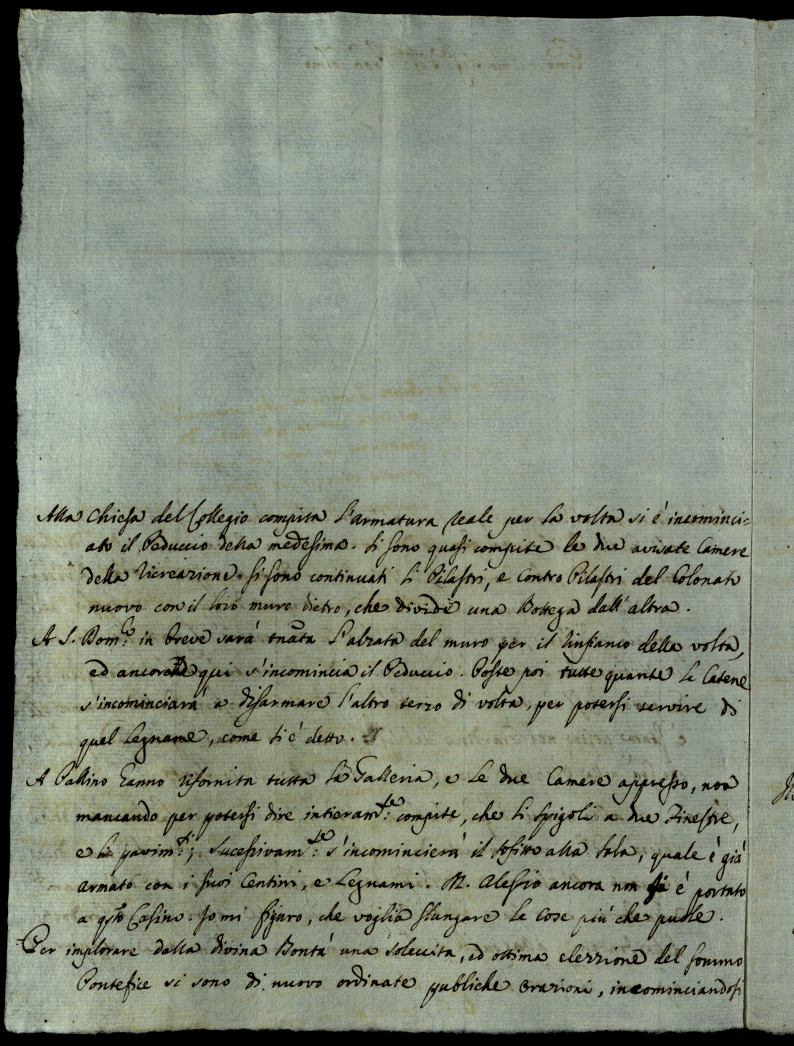 Alla Chiesa del Collegio compita l'armatura reale per la volta si è incominci=
ato il Peduccio della medesima. Si sono quasi compite le due avisate Camere
della ricreazione. Si sono continuati li Pilastri, e contro Pilastri del Colonato
nuovo con il loro muro dietro, che divide una Bottega dall'altra.
A S. Dom:co in breve sarà tr̃ta l'alzata del muro per il rinfianco della volta,
ed ancora qui s'incomincia il Peduccio. Poste poi tutte quante le Catene
s'incominciarà a disarmare l'altro terzo di volta, per potersi servire di
quel Legname, come si è detto.
A Pallino hanno rifornita tutta la Galleria, e le due Camere appresso, non
mancando per potersi dire intieram:te compite, che li spigoli a due Finestre,
e li pavim:ti; sucessivam:te s'incomincierà il soffitto alla sala, quale è già
armato con i suoi Centini, e Legnami. M. Alessio ancora non si è portato
a q:sto Casino. Io mi figuro, che voglia slungare le cose più che puole.
Per implorare dalla divina Bontà una sollecita, ed ottima elezzione del sommo
Pontefice si sono di nuovo ordinate publiche orazioni, incominciandosi